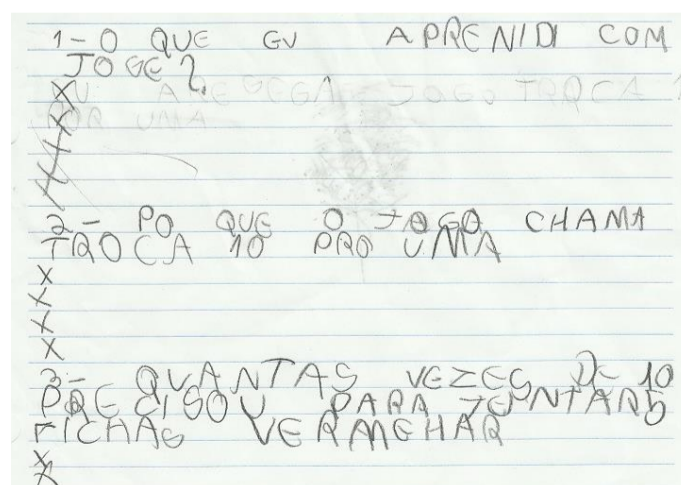 1-O QUE EU APRENIDI COM
JOGE?
X
JOGO TROCA 1
X POR UMA
X
X
2- PO QUE O JOGO CHAMA
TROCA 10 PRO UMA
X
X
X
X
3- QUANTAS VEZES DE 10
PRECISOU PARA JUNTAR 5
FICHAS VERMEHAR
X
X